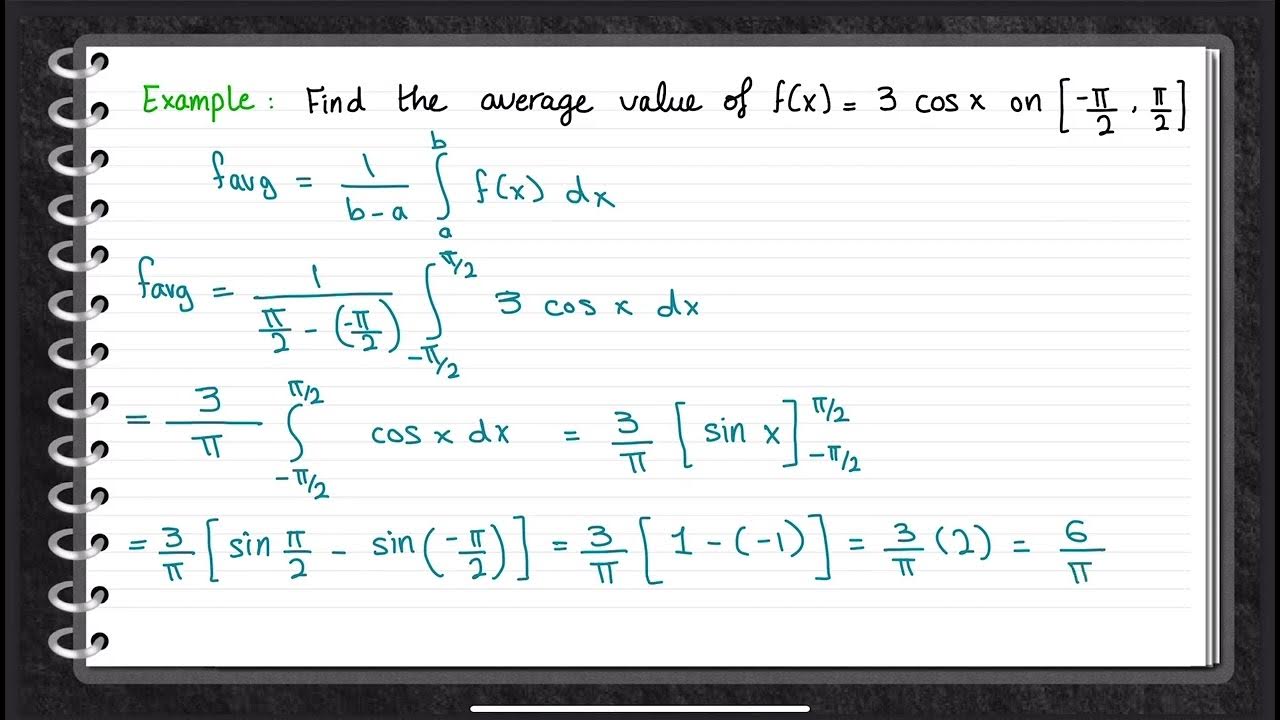 Example: Find the average value of f(x) = 3 cos x on [-π/2, π/2]
favg = 1/(b-a) ∫_a^b f(x) dx
favg = 1/(π/2 - (-π/2)) ∫_{-π/2}^{π/2} 3 cos x dx
= 3/π ∫_{-π/2}^{π/2} cos x dx = 3/π [sin x]_{-π/2}^{π/2}
= 3/π [sin π/2 - sin(-π/2)] = 3/π [1 - (-1)] = 3/π (2) = 6/π